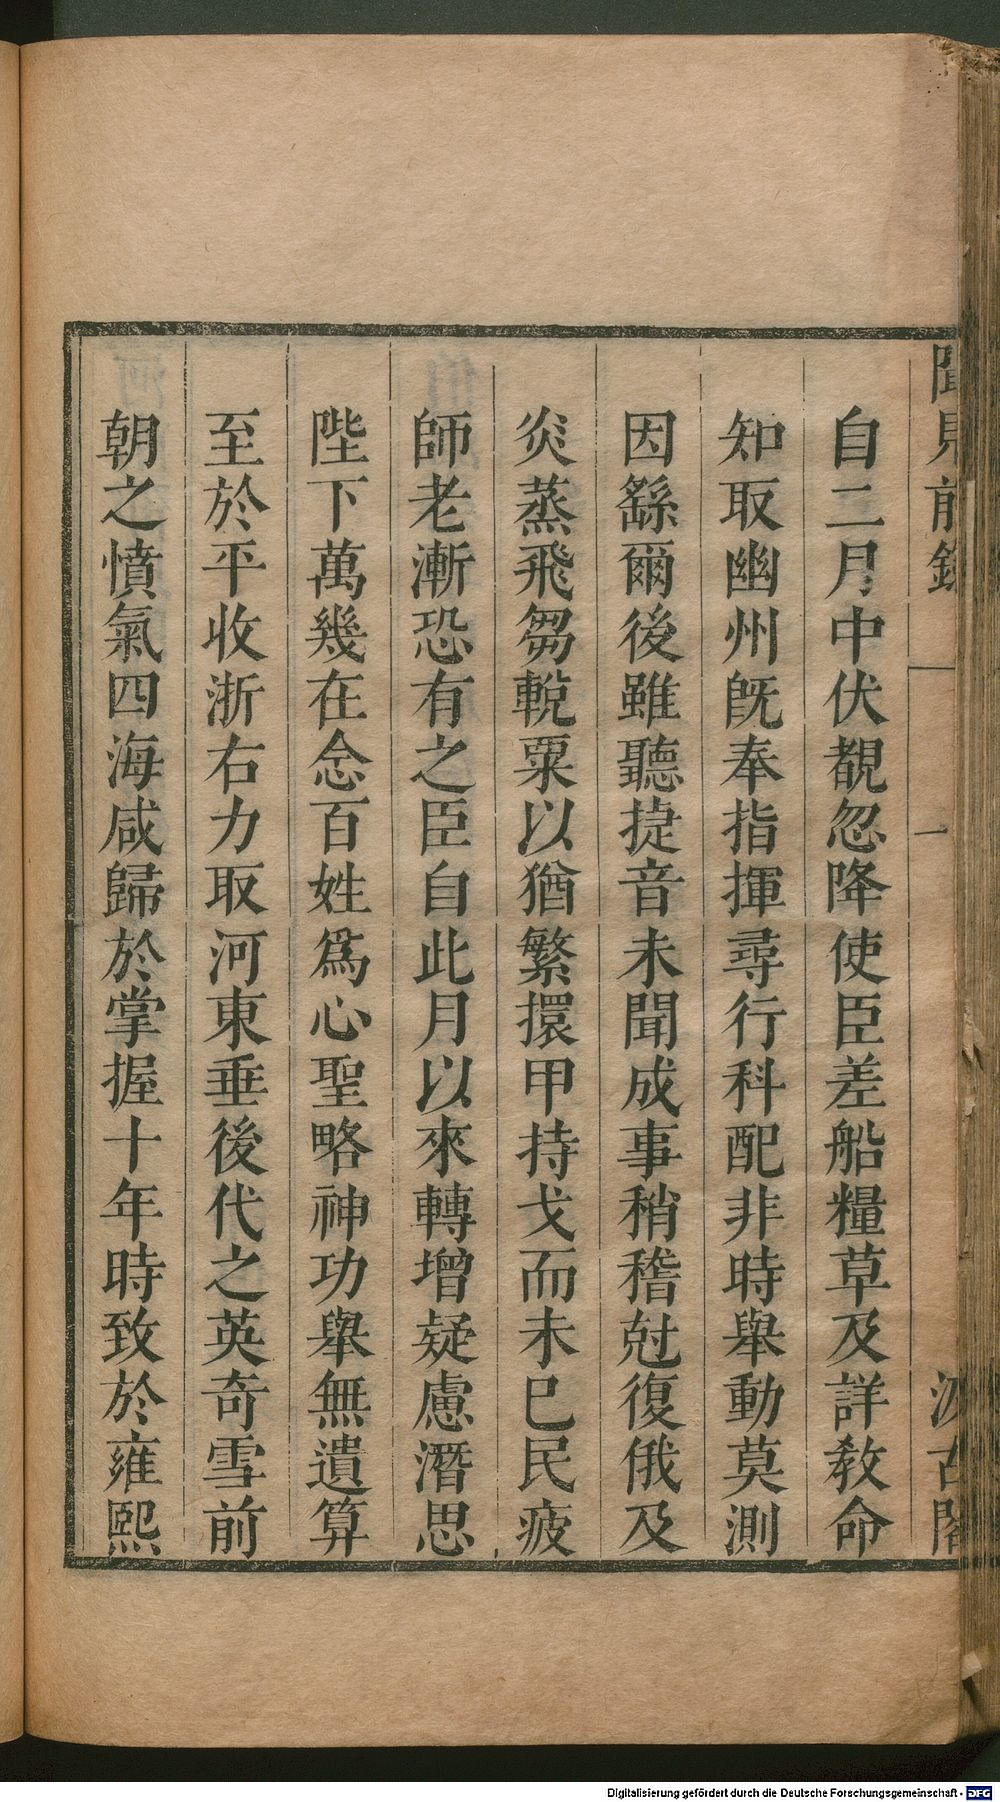 聞見前錄
一
汲古閣
自二月中伏覩忽降使臣差船糧草及詳教命
知取幽州旣奉指揮尋行科配非時舉動莫測
因繇爾後雖聽捷音未聞成事稍稽尅復俄及
炎蒸飛芻輓粟以猶繁擐甲持戈而未巳民疲
師老漸恐有之臣自此月以來轉增疑慮潛思
陛下萬幾在念百姓爲心聖略神功舉無遺算
至於平收浙右力取河東垂後代之英奇雪前
朝之憤氣四海咸歸於掌握十年時致於雍熙
Digitalisierung gefördert durch die Deutsche Forschungsgemeinschaft - DFG